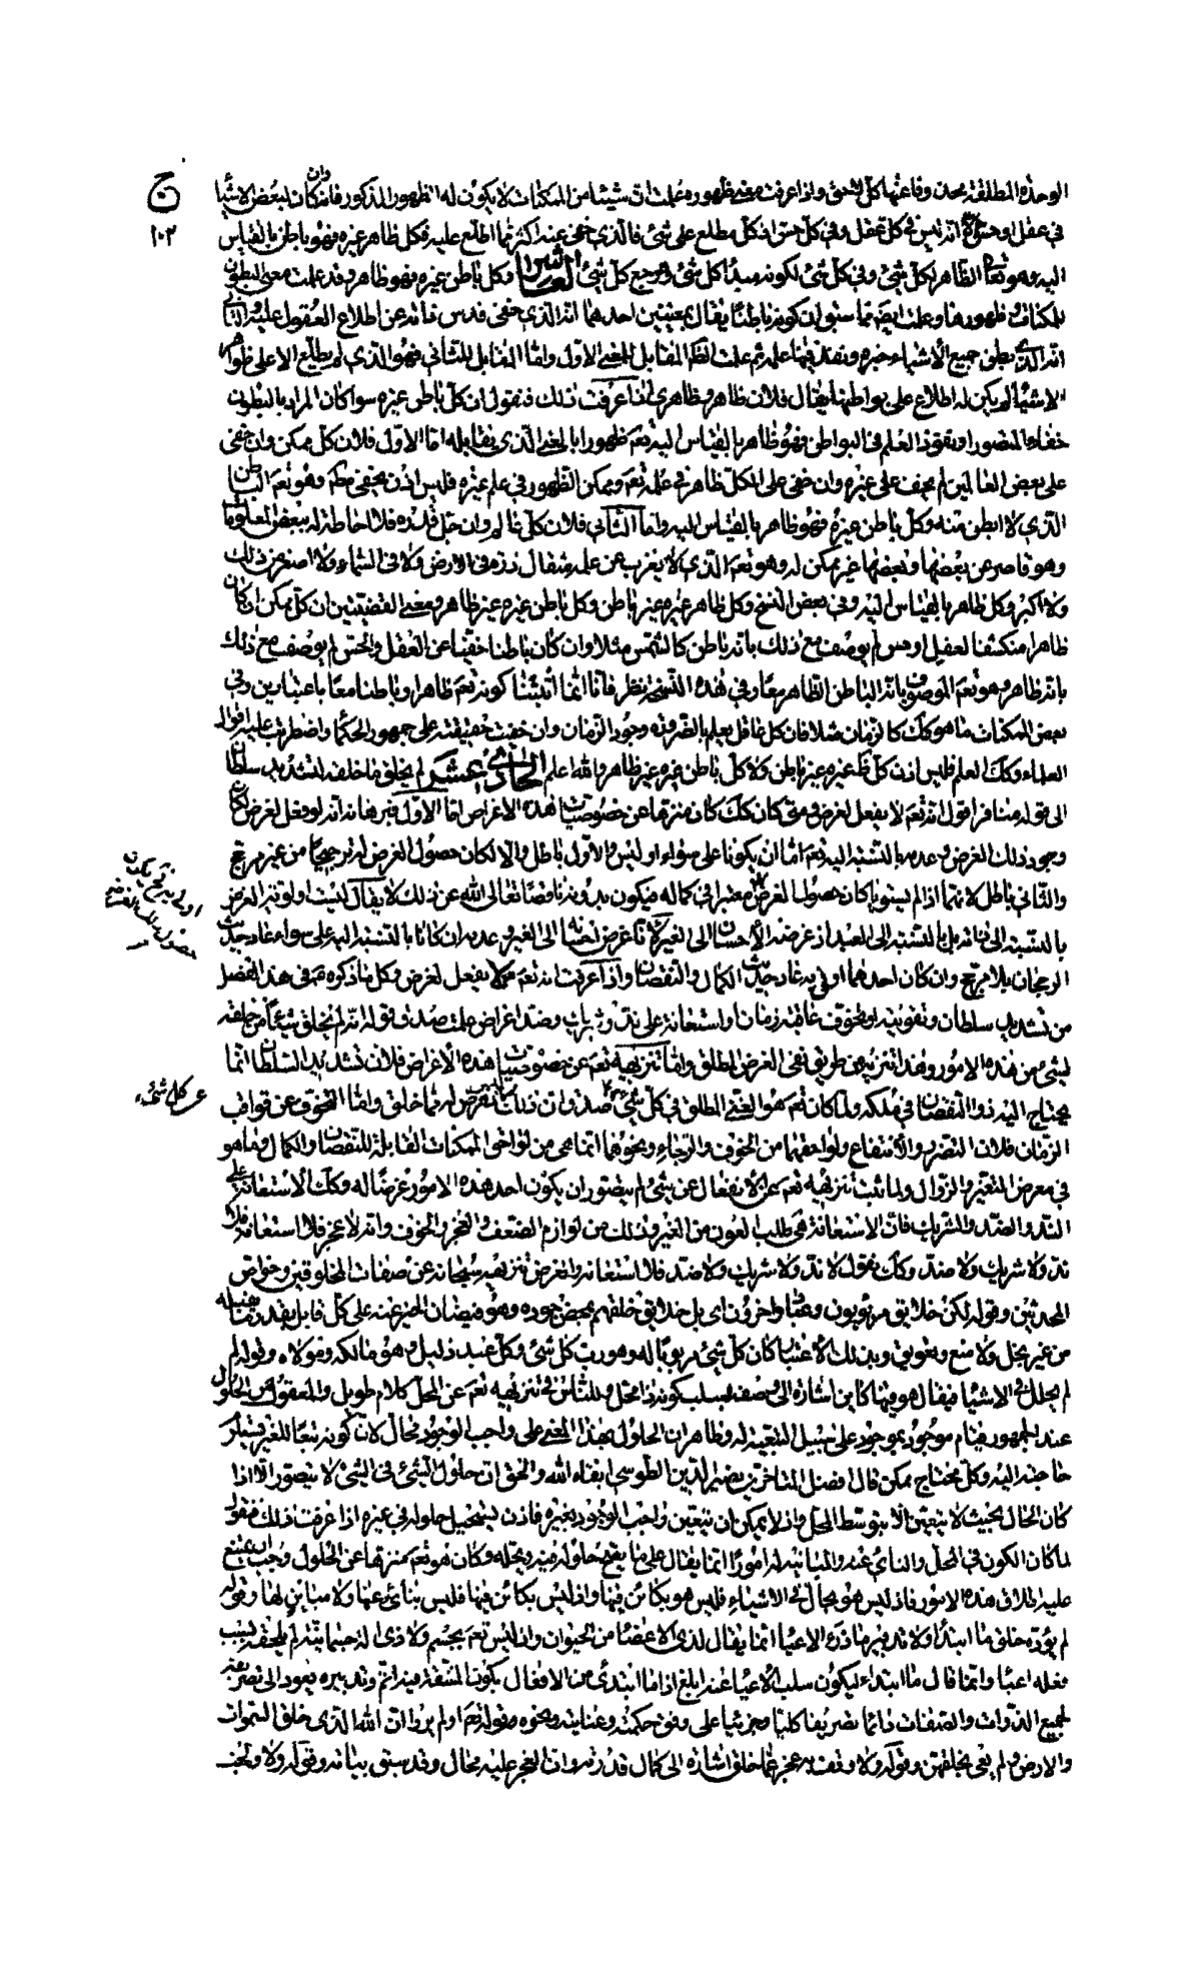 ج
١٠٢
الوحدة المطلقة محدث وفاعلها كل لاحق واذا عرفت معنى ظهوره علمت ان شيئا من الممكنات لا يكون له الظهور المذكور فانه وان كان لبعض الاشيا
في عقل او حس الا انه ليس في كل عقل وفي كل حس اذ كل مطلع على شئ فالذي خفي عنه اكثر مما اطلع عليه فكل ظاهر غيره فهو باطن بالقياس
اليه وهو تعالى الظاهر لكل شئ وفي كل شئ لكونه مبدأ كل شئ ومرجع كل شئ العاشر وكل باطن غيره فهو ظاهر وقد علمت معنى البطون
للممكنات وظهورها وعلمت ايضا مما سبق ان كونه باطنا يقال بمعنيين احدهما انه الذي خفي قدس ذاته عن اطلاع العقول عليه والثاني
انه الذي بطن جميع الأشياء خبره ونفذ فيها علمه ثم علمت الظاهر المقابل للمعنى الاول واما المقابل للثاني فهو الذي لم يطلع الا على ظواهر
الاشياء لم يكن له اطلاع على بواطنها يقال فلان ظاهر وظاهري اذا عرفت ذلك فنقول ان كل باطن غيره سوا كان المراد بالبطون
خفاء المتصور او بنفوذ العلم في البواطن فهو ظاهر بالقياس اليه تعم ظهورا بالمعنى الذي يقابله اما الاول فلان كل ممكن وان خفي
على بعض العالمين لم يخف على غيره وان خفي على الكل ظاهر في علمه تعم وممكن الظهور في علم غيره فليس اذن بخفي مطلقا وهو تعم الباطن
الذي لا ابطن منه وكل باطن غيره فهو ظاهر بالقياس اليه واما الثاني فلان كل عالم وان جل قدره فلا احاطة له ببعض المعلومات
وهو قاصر عن بعضها وبعضها غير ممكن له وهو تعم الذي لا يعزب عن علمه مثقال ذرة في الارض ولا في السماء ولا اصغر من ذلك
ولا اكبر وكل ظاهر بالقياس اليه وفي بعض النسخ وكل ظاهر غيره غير باطن وكل باطن غيره غير ظاهر ومعنى القضيتين ان كل ممكن ان كان
ظاهرا منكشفا لعقل او حس لم يوصف مع ذلك بانه باطن كالشمس مثلا وان كان باطنا خفيا عن العقل والحس لم يوصف مع ذلك
بانه ظاهر وهو تعم الموصوف بانه الباطن الظاهر معا وفي هذه النسخة نظر فانا انما أثبتنا كونه تعم ظاهرا وباطنا معا باعتبارين وفي
بعض الممكنات ما هو كك كالزمان مثلا فان كل عاقل يعلم بالضرورة وجود الزمان وان خفيت حقيقته على جمهور الحكما واضطربت عليه اقوال
العلماء وكك العلم فليس اذن كل ظ غيره غير باطن ولا كل باطن غيره غير ظاهر والله اعلم الحادي عشر لم يخلق ما خلقه لتشديد سلطان
الى قوله منافر اقول انه تعم لا يفعل لغرض ومتى كان كك كان منزها عن خصوصيات هذه الاغراض اما الاول فبرهانه انه لو فعل لغرض لكان
وجود ذلك الغرض وعدمه بالنسبة اليه تعم اما ان يكونا على سواء او ليس والاول باطل والا لكان حصول الغرض له ترجيحا من غير مرجح
والثاني باطل لانهما اذا لم يستويا كان حصول الغرض معتبرا في كماله فيكون بدونه ناقصا تعالى الله عن ذلك لا يقال ليست اولوية الغرض
بالنسبة الى ذاته بل بالنسبة الى العبد اذ غرضه الأحسان الى الغير لانا نقول غرض احسانه الى الغير وعدمه ان كانا بالنسبة اليه على سواء عاد حديث
الرجحان بلا مرجح وان كان احدهما اولى به عاد حديث الكمال والنقصان واذا عرفت انه تعم لا يفعل لغرض وكل ما ذكره في هذا الفصل
من تشديد سلطان وتقويته او تخوف عاقبة زمان او استعانة على ند وشريك وضد اغراض علمت صدق قوله انه لم يخلق شيئا من خلقه
لشئ من هذه الامور وهذا تنزيه من طريق نفي الغرض المطلق واما تنزيهه تعم عن خصوصيات هذه الأغراض فلان تشديد السلطان انما
يحتاج اليه ذو النقصان في ملكه ولما كان تعم هو الغنى المطلق في كل شئ صدق ان ذلك لم يغرض له مما خلق واما التخوف عن عواقب
الزمان فلان التضرر والانتفاع ولواحقهما من الخوف والرجاء ونحوهما انما هي من لواحق الممكنات القابلة للنقصان والكمال وما هو
في معرض التغير والزوال ولما ثبت تنزيهه تعم عن الانفعال عن شئ لم يتصور ان يكون احد هذه الامور غرضا له وكك الاستعانة على
الند والضد والشريك فان الاستعانة هي طلب العون من الغير وذلك من لوازم الضعف والعجز والخوف وانه لا عجز فلا استعانة فلا
ند ولا شريك ولا ضد وكك نقول لا ند ولا شريك ولا ضد فلا استعانة والغرض تنزيهه سبحانه عن صفات المخلوقين وخواص
المحدثين وقوله لكن خلايق مربوبون وعباد داخرون اى بل خلايق خلقهم بمحض جوده وهو فيضان الخير عنه على كل قابل بقدر ما يقبله
من غير بخل ولا منع وتعويق وبذلك الأعتبار كان كل شئ مربوبا له وهو رب كل شئ وكل عبد ذليل وهو مالكه ومولاه وقوله لم
لم يحلل في الاشياء فيقال هو فيها كاين اشارة الى وصفه بسلب كونه ذا محل وللناس في تنزيهه تعم عن المحل كلام طويل والمعقول من الحلول
عند الجمهور قيام موجود بموجود على سبيل التبعية له وظاهر ان الحلول بهذا المعنى على واجب الوجود محال لان كونه تبعا للغير يستلزم
حاجته اليه وكل محتاج ممكن قال افضل المتاخرين نصير الدين الطوسي ابقاه الله والحق ان حلول الشئ في الشئ لا يتصور الا اذا
كان الحال بحيث لا يتعين الا بتوسط المحل واذ لا يمكن ان يتعين واجب الوجود بغيره فاذن يستحيل حلوله في غيره اذا عرفت ذلك فنقول
لما كان الكون في المحل والنائ عنه والمباينة له امورا انما يقال على ما يصح حلوله فيه ويحله وكان هو تعم منزها عن الحلول وجب ان يمتنع
عليه اطلاق هذه الامور فاذ ليس هو بحال في الاشياء فليس هو بكائن فيها واذ ليس بكائن فيها فليس بنائ عنها ولا مباين لها وقوله
لم يؤده خلق ما ابتدأ ولا تدبير ما ذرء الاعياء انما يقال لذى الاعضا من الحيوان واذ ليس تعم بجسم ولا ذى الة جسمانية لم يلحقه بسبب
فعله اعياء وانما قال ما ابتداء ليكون سلب الأعياء عنه ابلغ اذ ما ابتدى من الافعال يكون المشقة فيه اتم وتدبيره يعود الى تصريفه
لجميع الذوات والصفات دائما تصريفا كليا وجزئيا على وفق حكمته وعنايته ونحوه قوله تعم اولم يروا ان الله الذى خلق السموات
والارض ولم يعي بخلقهن وقوله ولا وقف به عجز عما خلق اشارة الى كمال قدرته وان العجز عليه محال وقد سبق بيانه وقوله ولا ولجت
عن كل شئ